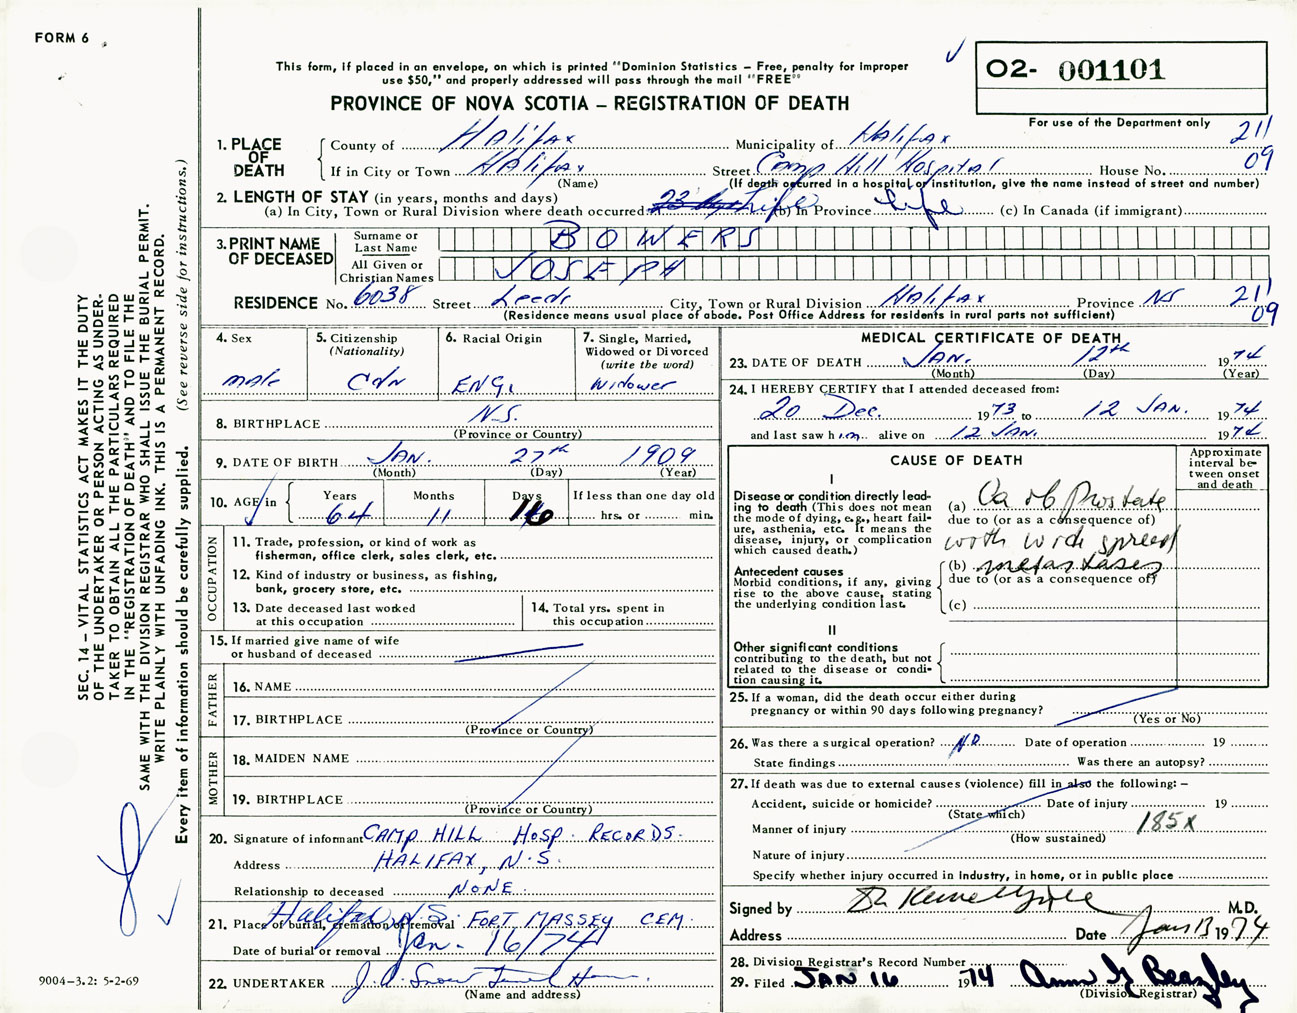 FORM 6
This form, if placed in an envelope, on which is printed "Dominion Statistics – Free, penalty for improper
use $50," and properly addressed will pass through the mail "FREE"
PROVINCE OF NOVA SCOTIA – REGISTRATION OF DEATH
02- 001101
For use of the Department only
211
09
1. PLACE OF DEATH
County of Halifax Municipality of Halifax
If in City or Town Halifax Street Camp Hill Hospital House No.
(Name) (If death occurred in a hospital or institution, give the name instead of street and number)
2. LENGTH OF STAY (in years, months and days)
(a) In City, Town or Rural Division where death occurred Life (b) In Province life (c) In Canada (if immigrant)
3. PRINT NAME OF DECEASED
Surname or Last Name BOWERS
All Given or Christian Names JOSEPH
RESIDENCE No. 6038 Street Leeds City, Town or Rural Division Halifax Province NS
211
09
(Residence means usual place of abode. Post Office Address for residents in rural parts not sufficient)
4. Sex
male
5. Citizenship (Nationality)
Cdn
6. Racial Origin
ENG.
7. Single, Married, Widowed or Divorced (write the word)
Widower
8. BIRTHPLACE N.S.
(Province or Country)
9. DATE OF BIRTH JAN. 27th 1909
(Month) (Day) (Year)
10. AGE in Years Months Days If less than one day old
64 11 16 hrs. or min.
OCCUPATION
11. Trade, profession, or kind of work as
fisherman, office clerk, sales clerk, etc.
12. Kind of industry or business, as fishing,
bank, grocery store, etc.
13. Date deceased last worked
at this occupation
14. Total yrs. spent in
this occupation
15. If married give name of wife
or husband of deceased
FATHER
16. NAME
17. BIRTHPLACE
(Province or Country)
MOTHER
18. MAIDEN NAME
19. BIRTHPLACE
(Province or Country)
20. Signature of informant CAMP HILL HOSP. RECORDS.
Address HALIFAX, N.S.
Relationship to deceased NONE.
21. Place of burial, cremation or removal Halifax N.S. FORT MASSEY CEM.
Date of burial or removal Jan. 16/74
22. UNDERTAKER J.A. Snow Funeral Home.
(Name and address)
MEDICAL CERTIFICATE OF DEATH
23. DATE OF DEATH JAN. 12th 1974
(Month) (Day) (Year)
24. I HEREBY CERTIFY that I attended deceased from:
20 Dec. 1973 to 12 JAN. 1974
and last saw him alive on 12 JAN. 1974
CAUSE OF DEATH
Approximate interval between onset and death
I
Disease or condition directly lead-
ing to death (This does not mean
the mode of dying, e.g., heart fail-
ure, asthenia, etc. It means the
disease, injury, or complication
which caused death.)
(a) Ca of Prostate
due to (or as a consequence of)
with wide spread
Antecedent causes
Morbid conditions, if any, giving
rise to the above cause, stating
the underlying condition last.
(b) metastases
due to (or as a consequence of)
(c)
II
Other significant conditions
contributing to the death, but not
related to the disease or condi-
tion causing it.
25. If a woman, did the death occur either during
pregnancy or within 90 days following pregnancy?
(Yes or No)
26. Was there a surgical operation? No Date of operation 19
State findings Was there an autopsy?
27. If death was due to external causes (violence) fill in also the following: –
Accident, suicide or homicide? Date of injury 19
(State which)
Manner of injury 185X
(How sustained)
Nature of injury
Specify whether injury occurred in industry, in home, or in public place
Signed by Dr. M.D.
Address Date Jan 13 1974
28. Division Registrar's Record Number
29. Filed JAN 16 1974 Ann G Beazley
(Division Registrar)
SEC. 14 – VITAL STATISTICS ACT MAKES IT THE DUTY
OF THE UNDERTAKER OR PERSON ACTING AS UNDER-
TAKER TO OBTAIN ALL THE PARTICULARS REQUIRED
IN THE "REGISTRATION OF DEATH" AND TO FILE THE
SAME WITH THE DIVISION REGISTRAR WHO SHALL ISSUE THE BURIAL PERMIT.
WRITE PLAINLY WITH UNFADING INK. THIS IS A PERMANENT RECORD.
Every item of information should be carefully supplied. (See reverse side for instructions.)
9004-3.2: 5-2-69